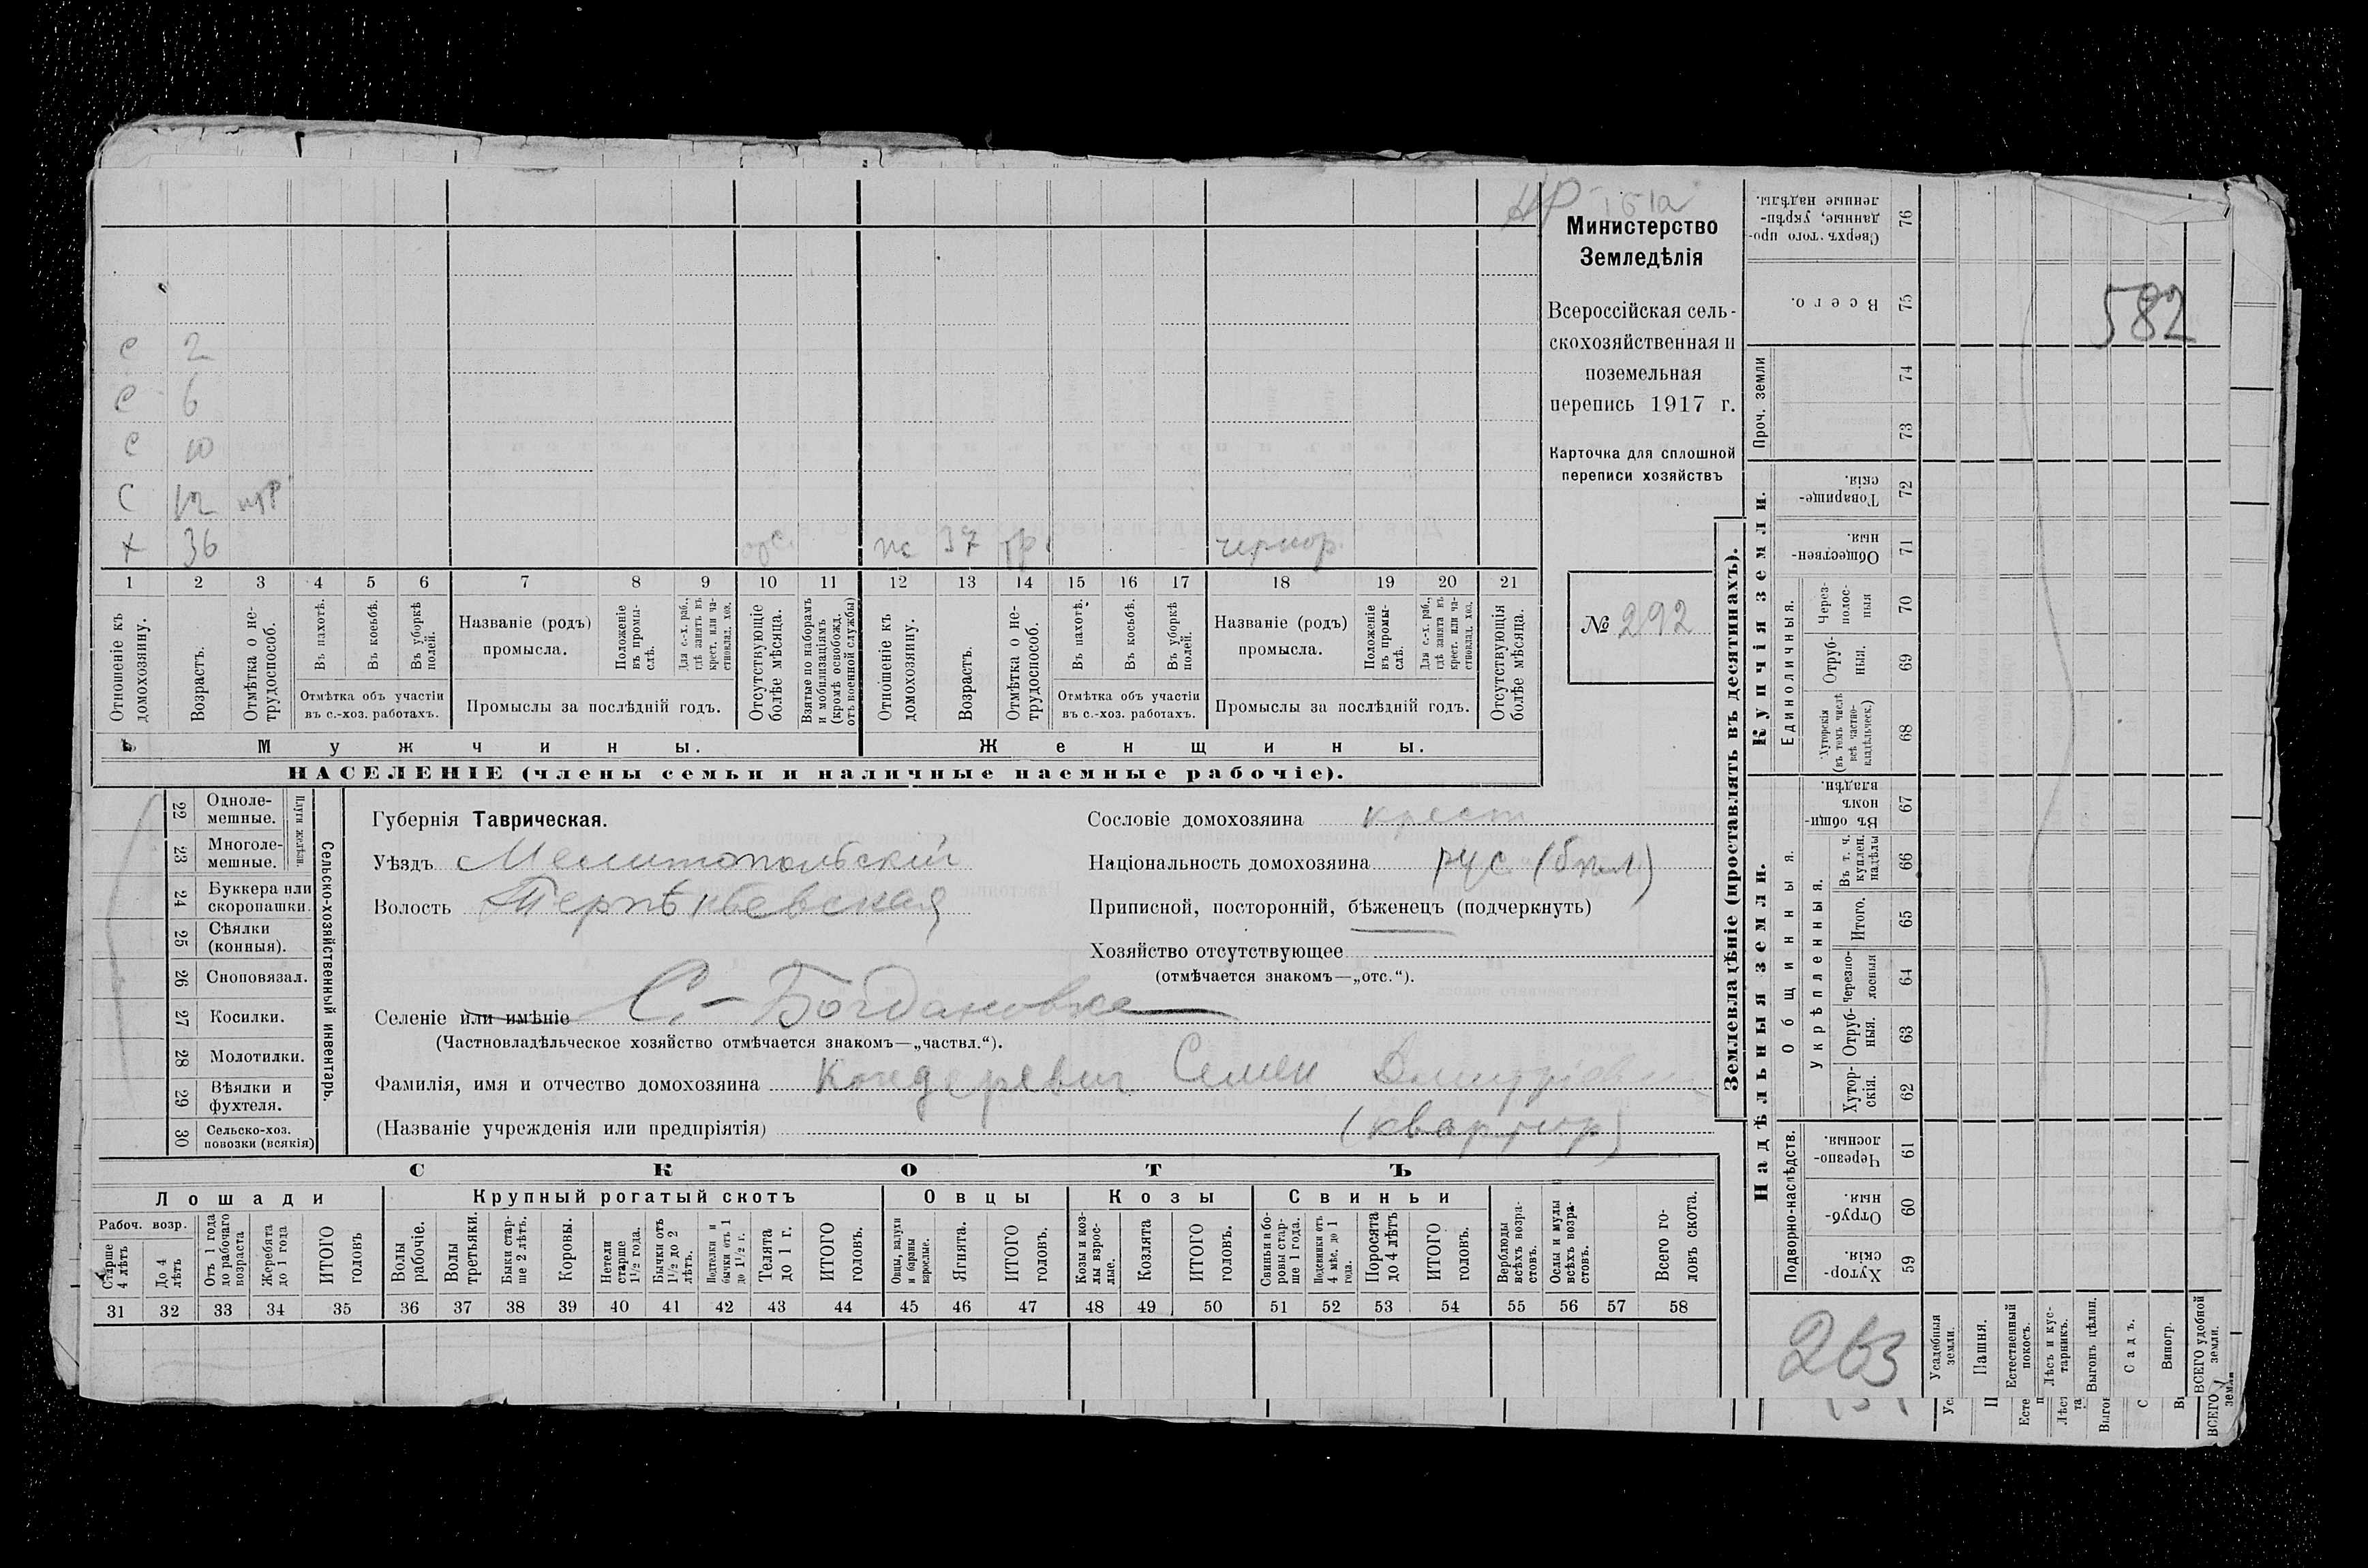 Министерство
Земледѣлія
Всероссійская сель-
скохозяйственная и
поземельная
перепись 1917 г.
Карточка для сплошной
переписи хозяйствъ
№ 292
582
с 2
с 6
с 10
с 12
х 36 ж 37 чернор.
1 2 3 4 5 6 7 8 9 10 11 12 13 14 15 16 17 18 19 20 21
Отношеніе къ домохозяину.
Возрастъ.
Отмѣтка о не-трудоспособ.
Въ пахотѣ.
Въ косьбѣ.
Въ уборкѣ полей.
Отмѣтка объ участіи
въ с.-хоз. работахъ.
Названіе (родъ)
промысла.
Положеніе въ промы-слѣ.
Для с.-х. раб., гдѣ занятъ въ крест. или ча-стновлад. хоз.
Промыслы за послѣдній годъ.
Отсутствующіе болѣе мѣсяца.
Взятые по наборамъ и мобилизаціямъ (кромѣ освобожд. отъ военной службы)
Отношеніе къ домохозяину.
Возрастъ.
Отмѣтка о не-трудоспособ.
Въ пахотѣ.
Въ косьбѣ.
Въ уборкѣ полей.
Отмѣтка объ участіи
въ с.-хоз. работахъ.
Названіе (родъ)
промысла.
Положеніе въ промы-слѣ.
Для с.-х. раб., гдѣ занята въ крест. или ча-стновлад. хоз.
Промыслы за послѣдній годъ.
Отсутствующія болѣе мѣсяца.
Мужчины. Женщины.
НАСЕЛЕНІЕ (члены семьи и наличные наемные рабочіе).
Сельско-хозяйственный инвентарь.
Плуги желѣзн.
22 Одноле-мешные.
23 Многоле-мешные.
24 Буккера или скоропашки.
25 Сѣялки (конныя).
26 Сноповязал.
27 Косилки.
28 Молотилки.
29 Вѣялки и фухтеля.
30 Сельско-хоз. повозки (всякія)
Губернія Таврическая.
Уѣздъ Мелитопольскій
Волость Терпѣньевская
Сословіе домохозяина крест
Національность домохозяина рус (бѣл)
Приписной, посторонній, бѣженецъ (подчеркнуть)
Хозяйство отсутствующее
(отмѣчается знакомъ—„отс.“).
Селеніе или имѣніе С.- Богдановка
(Частновладѣльческое хозяйство отмѣчается знакомъ—„частвл.“).
Фамилія, имя и отчество домохозяина Кондеревич Семен Дмитріев
(Названіе учрежденія или предпріятія) (квартир)
СКОТЪ
Лошади Крупный рогатый скотъ Овцы Козы Свиньи
Рабоч. возр.
Старше 4 лѣтъ
До 4 лѣтъ
Отъ 1 года до рабочаго возраста
Жеребята до 1 года
ИТОГО головъ
Волы рабочіе.
Волы третьяки.
Быки стар-ше 2 лѣтъ.
Коровы.
Нетели старше 1½ года.
Бычки отъ 1½ до 2 лѣтъ.
Подтелки и бычки отъ 1 до 1½ г.
Телята до 1 г.
ИТОГО головъ.
Овцы, валухи и бараны взрослые.
Ягнята.
ИТОГО головъ.
Козы и коз-лы взрос-лые.
Козлята
ИТОГО головъ.
Свиньи и бо-ровы стар-ше 1 года.
Подсвинки отъ 4 мѣс. до 1 года.
Поросята до 4 лѣтъ
ИТОГО головъ.
Верблюды всѣхъ возра-стовъ.
Ослы и мулы всѣхъ возра-стовъ.
Всего го-ловъ скота.
31 32 33 34 35 36 37 38 39 40 41 42 43 44 45 46 47 48 49 50 51 52 53 54 55 56 57 58
Землевладѣніе (проставлять въ десятинахъ).
Купчія земли.
Надѣльныя земли.
Сверхъ того про-данные, укрѣп-ленные надѣлы. 76
Всего. 75
Проч. земли 74 73
Товарище-скія. 72
Обществен-ныя. 71
Единоличныя.
Через-полос-ныя 70
Отруб-ныя. 69
Хуторскія (въ томъ числѣ всѣ частно-владѣльческ.) 68
Общинныя.
Въ общи-номъ владѣн. 67
Укрѣпленныя.
Въ т. ч. куплен. надѣлы 66
Итого. 65
Черезпо-лосныя 64
Отруб-ныя. 63
Хутор-скія. 62
Подворно-наслѣдств.
Черезпо-лосныя. 61
Отруб-ныя. 60
Хутор-скія. 59
263
Усадебныя земли.
Пашня.
Естественный покосъ.
Лѣсъ и кус-тарникъ.
Выгонъ цѣлин.
Садъ.
Виногр.
ВСЕГО удобной земли.